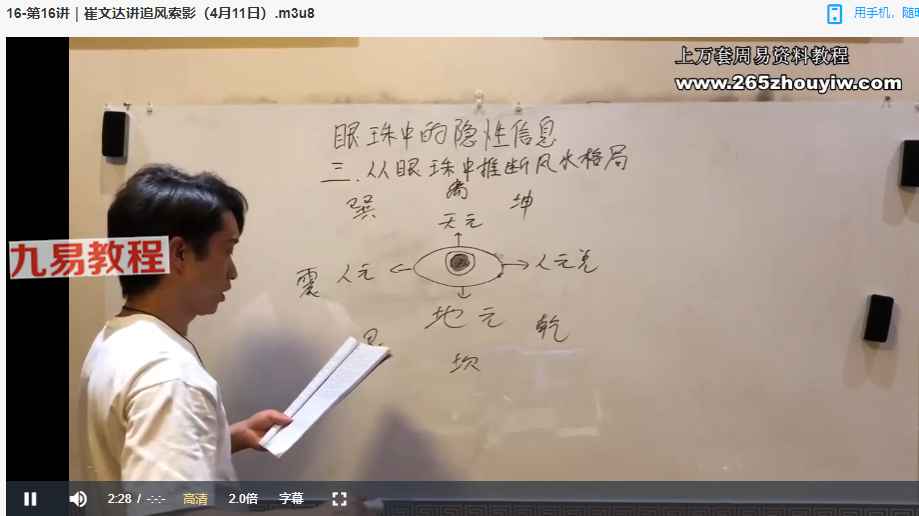 16-第16讲 | 崔文达讲追风索影（4月11日）.m3u8
用手机，随时
上万套周易资料教程
www.265zhouyiw.com
眼珠中的隐性信息
三.从眼珠中推断风水格局
巽 离 坤
天元
九易教程
震 人元 人元兑
地元 乾
坎
2:28 / -:-:-
高清
2.0倍
字幕